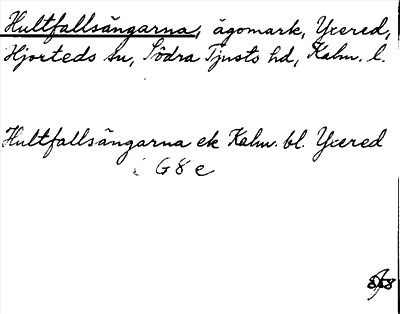 Hultfallsängarna, ägomark, Yxered,
Hjorteds sn, Södra Tjusts hd, Kalm. l.
Hultfallsängarna ek Kalm. bl. Yxered
G8e